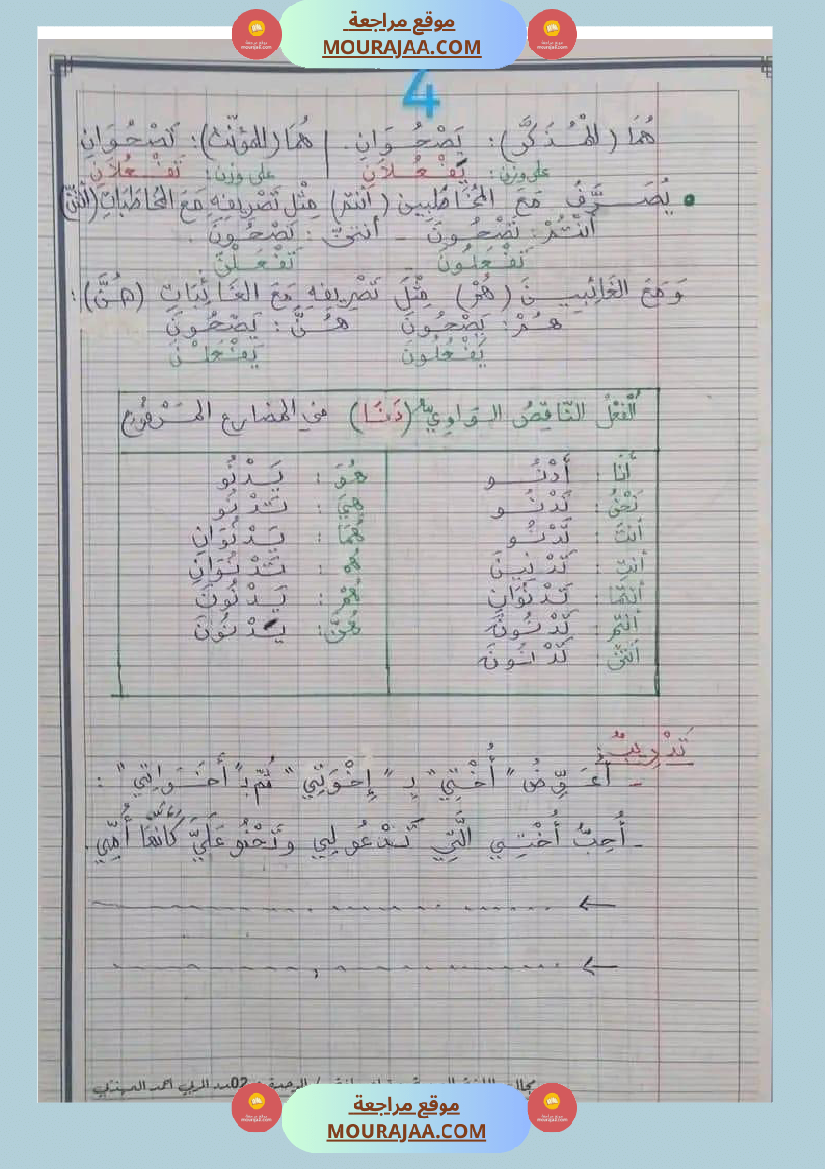 موقع مراجعة
MOURAJAA.COM
4
هُمَا (المُذَكَّر): يَصْحُوَانِ. | هُمَا (المُؤَنَّث): تَصْحُوَانِ
على وزن: يَفْعُلَانِ على وزن: تَفْعُلَانِ
• يُصَرَّفُ مَعَ المُخَاطَبِينَ (أنتم) مِثْلَ تَصْرِيفِهِ مَعَ المُخَاطَبَاتِ (أنتنّ)
أَنْتُمْ: تَصْحُونَ - أنتنّ: تَصْحُونَ.
تَفْعُلُونَ تَفْعُلْنَ
وَمَعَ الغَائِبِينَ (هُمْ) مِثْلَ تَصْرِيفِهِ مَعَ الغَائِبَاتِ (هُنَّ):
هُمْ: يَصْحُونَ هُنَّ: يَصْحُونَ
يَفْعُلُونَ يَفْعُلْنَ
الفِعْلُ النَّاقِصُ الوَاوِيّ (دَنَا) في المضارع المَرْفُوع
أَنَا: أَدْنُو
نَحْنُ: نَدْنُو
أنتَ: تَدْنُو
أنتِ: تَدْنِينَ
أنتُمَا: تَدْنُوَانِ
أنتُم: تَدْنُونَ
أنتُنَّ: تَدْنُونَ
هُوَ: يَدْنُو
هِيَ: تَدْنُو
هُمَا: يَدْنُوَانِ
هما: تَدْنُوَانِ
هُمْ: يَدْنُونَ
هُنَّ: يَدْنُونَ
تَدْرِيبٌ:
- أُعَوِّضُ "أُخْتِي" بِـ "إِخْوَتِي" ثُمّ بِـ "أَخَوَاتِي":
- أُحِبُّ أُخْتِي الَّتِي تَدْعُو لِي وَتَحْنُو عَلَيَّ كَأَنَّهَا أُمِّي.
←
←
موقع مراجعة
MOURAJAA.COM